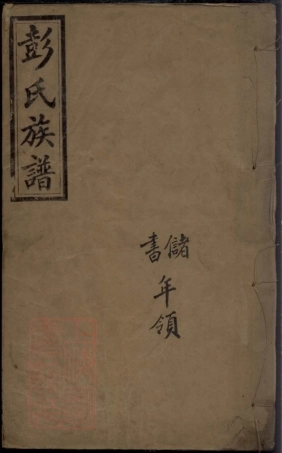 彭氏族譜
儲書年領